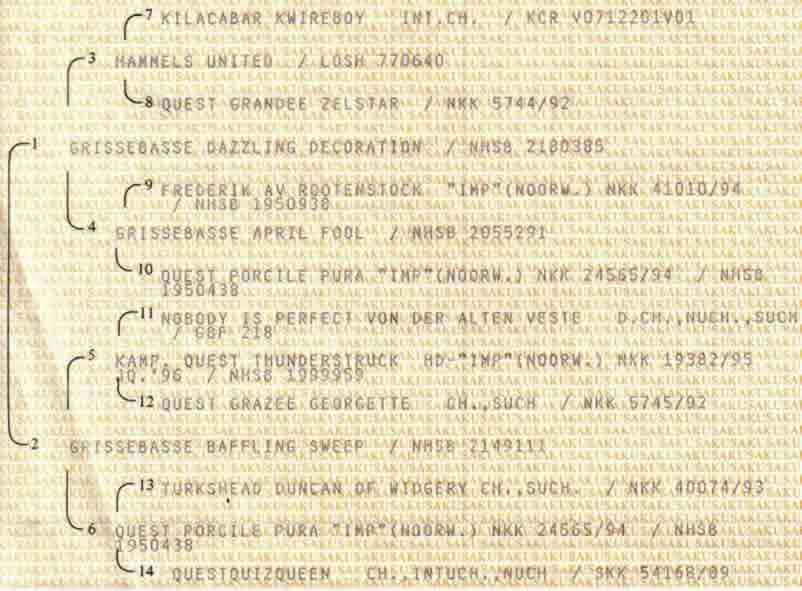 7 KILACABAR KWIREBOY INT.CH. / KCR V0712201V01
3 HAMMELS UNITED / LOSH 770640
8 QUEST GRANDEE ZELSTAR / NKK 5744/92
1 GRISSEBASSE DAZZLING DECORATION / NHSB 2180385
9 FREDERIK AV ROOTENSTOCK "IMP"(NOORW.) NKK 41010/94
/ NHSB 1950938
4 GRISSEBASSE APRIL FOOL / NHSB 2055291
10 QUEST PORCILE PURA "IMP"(NOORW.) NKK 24565/94 / NHSB
1950438
11 NOBODY IS PERFECT VON DER ALTEN VESTE D.CH.,NUCH.,SUCH
/ GBF 218
5 KAMP. QUEST THUNDERSTRUCK HD-"IMP"(NOORW.) NKK 19382/95
JO.'96 / NHSB 1999959
12 QUEST GRAZEE GEORGETTE CH.,SUCH / NKK 5745/92
2 GRISSEBASSE BAFFLING SWEEP / NHSB 2149111
13 TURKSHEAD DUNCAN OF WIDGERY CH.,SUCH. / NKK 40074/93
6 QUEST PORCILE PURA "IMP"(NOORW.) NKK 24565/94 / NHSB
1950438
14 QUESTQUIZQUEEN CH.,INTUCH.,NUCH / SKK 54168/89